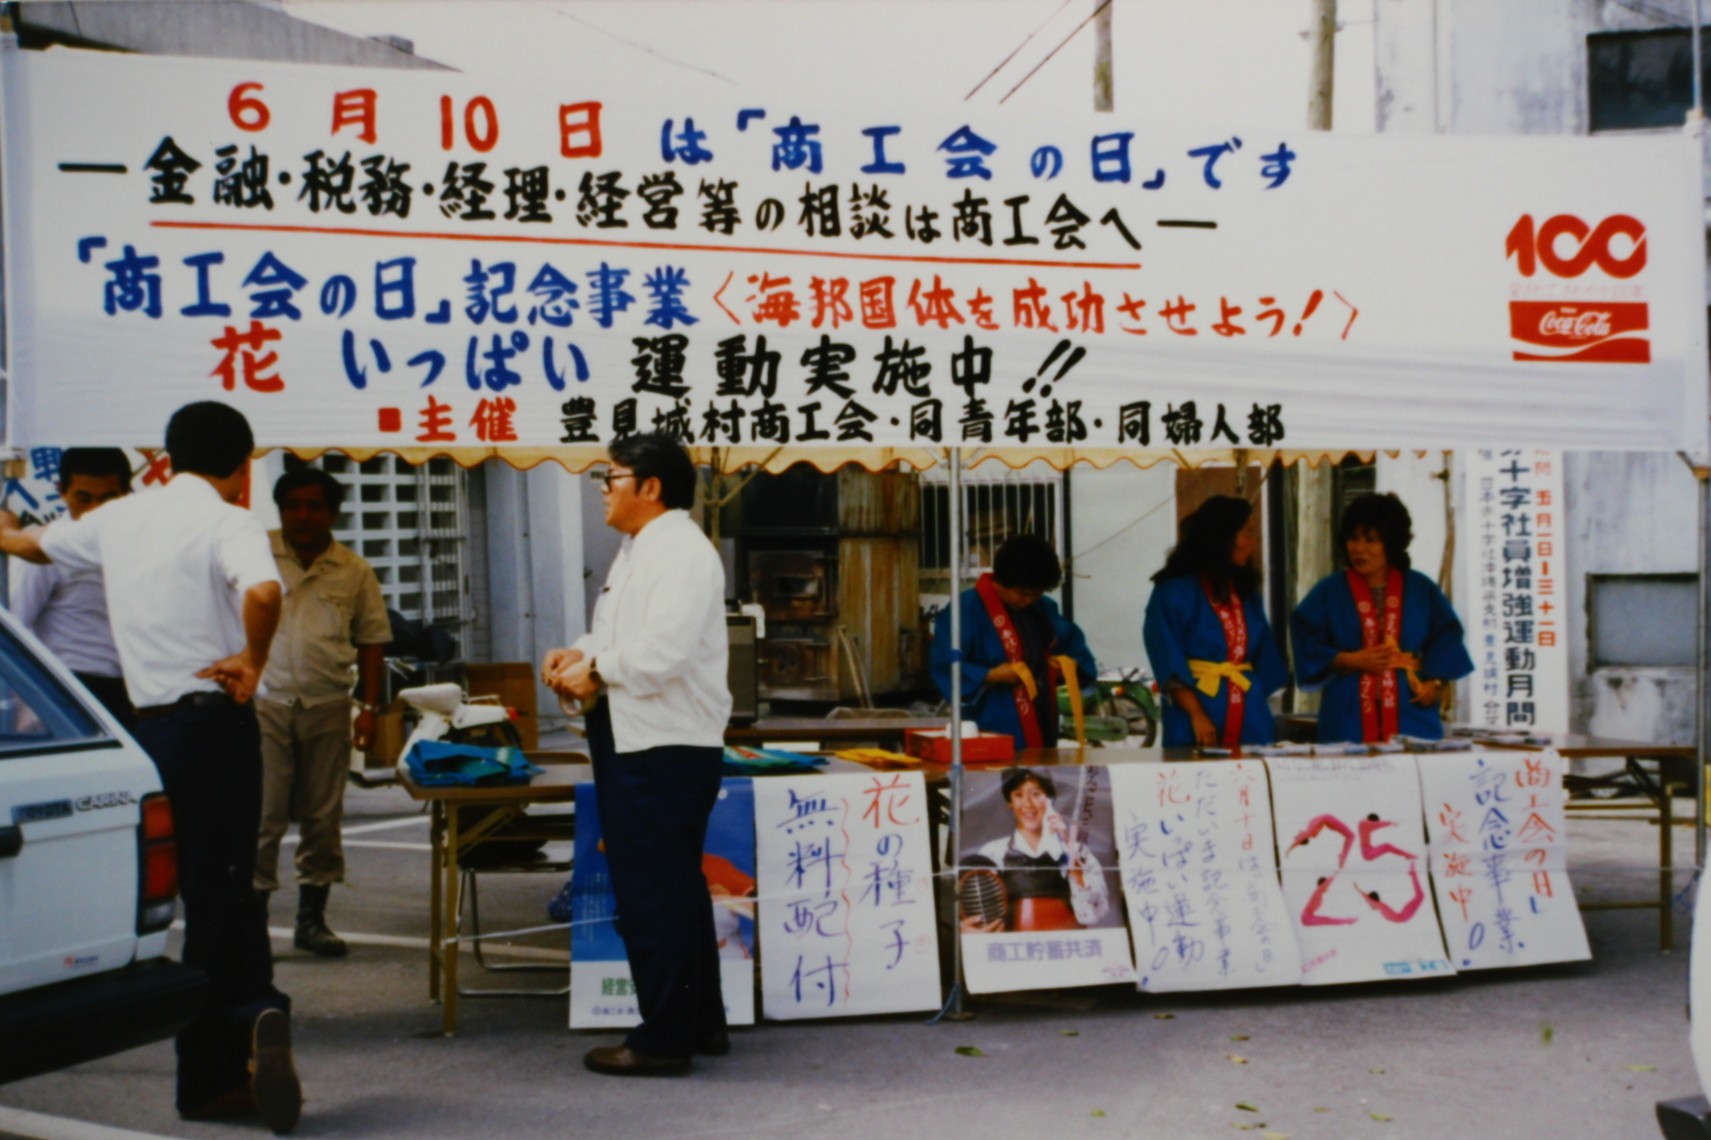 6月10日は「商工会の日」です
―金融・税務・経理・経営等の相談は商工会へ―
「商工会の日」記念事業〈海邦国体を成功させよう!〉
花いっぱい運動実施中!!
■主催 豊見城村商工会・同青年部・同婦人部
100
Coca-Cola
十字社員増強運動月間
五月一日-三十一日
TOYOTA CARINA
花の種子
無料配付
商工貯蓄共済
六月十日は「商工会の日」
ただいま記念事業
花いっぱい運動
実施中!
25
商工会の日
記念事業
実施中!